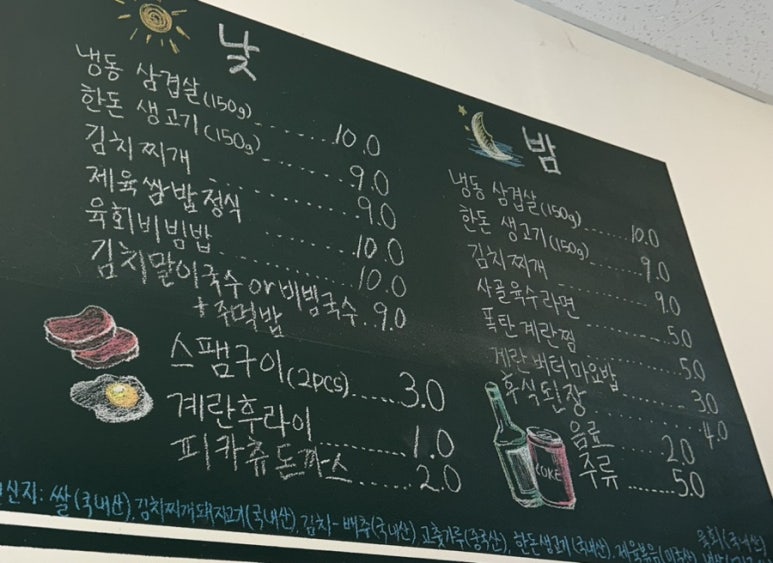 낮
냉동 삼겹살(150g)......10.0
한돈 생고기(150g)......9.0
김치찌개......9.0
제육쌈밥정식......10.0
육회비빔밥......10.0
김치말이국수 or 비빔국수..9.0
+주먹밥
스팸구이(2pcs)......3.0
계란후라이......1.0
피카츄돈까스......2.0
밤
냉동 삼겹살(150g)......10.0
한돈 생고기(150g)......9.0
김치찌개......9.0
사골육수라면......5.0
폭탄계란찜......5.0
계란버터마요밥......3.0
후식된장......4.0
음료......2.0
주류......5.0
COKE
원산지: 쌀(국내산), 김치찌개돼지고기(국내산), 김치-배추(국내산), 고춧가루(중국산), 한돈생고기(국내산), 제육볶음
육회(국내산)